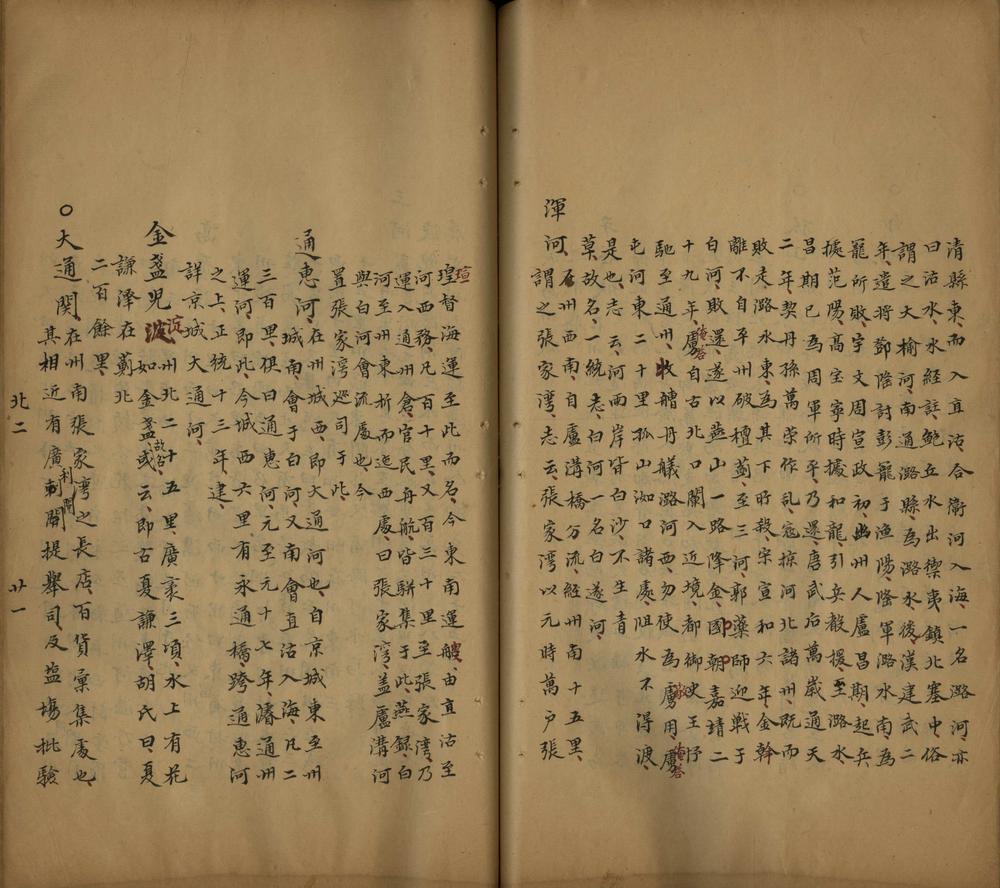 清縣東而入直沽合衞河入海一名潞河亦
曰沽水水經註鮑丘水出禦夷鎮北塞中俗
謂之大榆河南通潞縣為潞水後漢建武二
年遣将鄧隆討彭寵于漁陽隆軍潞水南為
寵所敗宇文周宣政初幽州人盧昌期起兵
據范陽高宝寧時據和龍引兵救援至潞水
昌期已為周軍所平乃還唐武后萬歲通天
二年契丹孫萬荣作乱寇掠河北諸州既而
敗走潞水東為其下所殺宋宣和六年金幹
離不自平州破檀薊至三河郭藥師迎戦于
白河敗還遂以燕山一路降金國朝嘉靖二
十九年虜自古北口闌入近境都御史王忬
馳至通州收艚舟艤潞河西勿使為虜用虜
屯河東二十里孤山泇口諸處阻水不得渡
是也志云河两岸皆白沙不生青
草故名一統志白河一名白遂河
渾河在州西南自盧溝橋分流経州南十五里
謂之張家湾志云張家湾以元時萬戸張
瑄督海運至此而名今東南運艘由直沽至
河西務凡百十里又百三十里至張家湾乃
運入通州倉官民舟航皆駢集于此燕録白
河至州東折而迤西處曰張家湾盖盧溝河
與白河會流處也今
置張家湾巡司于此
通惠河在州城西即大通河也自京城東至州
城南會于白河又南會直沽入海凡二
三百里俱曰通惠河元至元十七年濬通州
運河即此今城西六里有永通橋跨通惠河
之上正統十三年建
詳京城大通河
金盞児淀州北二十五里廣袤三頃水上有花
如金盞故名或云即古夏謙澤胡氏曰夏
謙泽在薊北
二百餘里
○大通関在州南張家湾之長店百貨彙集處也
其相近有廣利閘提舉司及塩場批驗
北二 廿一